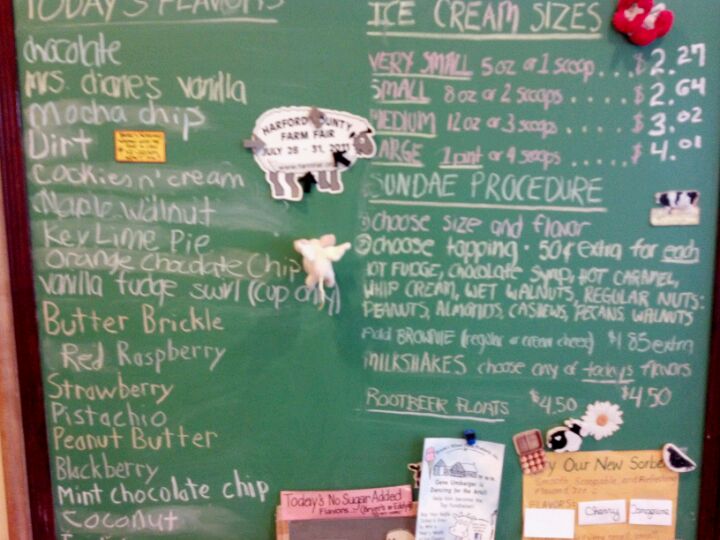 TODAY'S FLAVORS
chocolate
mrs. diane's vanilla
Mocha chip
Dirt
Cookies n' cream
Maple walnut
Key Lime Pie
Orange Chocolate Chip
vanilla fudge swirl (cup only)
Butter Brickle
Red Raspberry
Strawberry
Pistachio
Peanut Butter
Blackberry
Mint chocolate chip
Coconut
HARFORD COUNTY
FARM FAIR
JULY 26 - 31, 2011
ICE CREAM SIZES
VERY SMALL 5 oz or 1 scoop....$2.27
SMALL 8 oz or 2 scoops.....$2.64
MEDIUM 12 oz or 3 scoops....$3.02
LARGE 1 pint or 4 scoops....$4.01
SUNDAE PROCEDURE
① choose size and flavor
② choose topping · 50¢ extra for each
HOT FUDGE, chocolate syrup, HOT CARAMEL,
WHIP CREAM, WET WALNUTS, REGULAR NUTS:
PEANUTS, ALMONDS, CASHEWS, PECANS, WALNUTS
Add BROWNIE (regular or cream cheese) $1.85 extra
MILKSHAKES choose any of today's flavors
$4.50
ROOTBEER FLOATS $4.50
Today's No Sugar Added
Flavors
Try Our New Sorbet
Smooth, Scoopable, and Refreshing
FLAVORS
Cherry
Tangerine